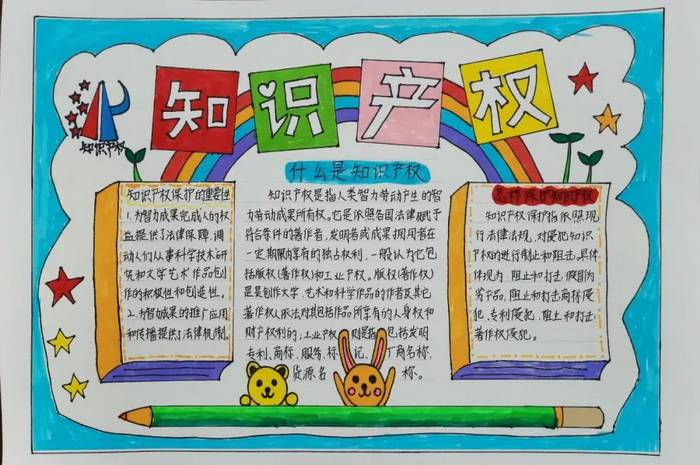 知识产权
知识产权
什么是知识产权
知识产权保护的重要性
1.为智力成果完成人的权
益提供了法律保障,调
动人们从事科学技术研
究和文学艺术作品创
作的积极性和创造性。
2.为智力成果的推广应用
和传播提供了法律机制。
知识产权是指人类智力劳动产生的智
力劳动成果所有权。它是依照各国法律赋予
符合条件的著作者,发明者或成果拥用者在
一定期限内享有的独占权利,一般认为它包
括版权(著作权)和工业产权。版权(著作权)
是是创作文学、艺术和科学作品的作者及其它
著作权人依法对其包括作品所享有的人身权和
财产权利的;工业产权则是指包括发明
专利、商标、服务标记、厂商名称、
货源名称。
怎样保护知识产权
知识产权保护指依照现
行法律法规,对侵犯知识
产权的进行制止和阻击。具体
体现为:阻止和打击假冒伪
劣产品,阻止和打击商标侵
犯、专利侵犯,阻止和打击
著作权侵犯。